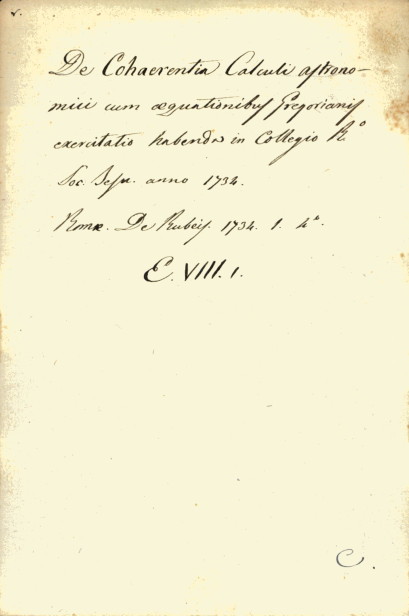 De Cohaerentia Calculi astrono-
mici cum æquationibus Gregorianis
exercitatio habenda in Collegio R.º
Soc. Jesu. anno 1734.
Romæ. De Rubeis. 1734. 1. 4º.
E. VIII. 1.
C.